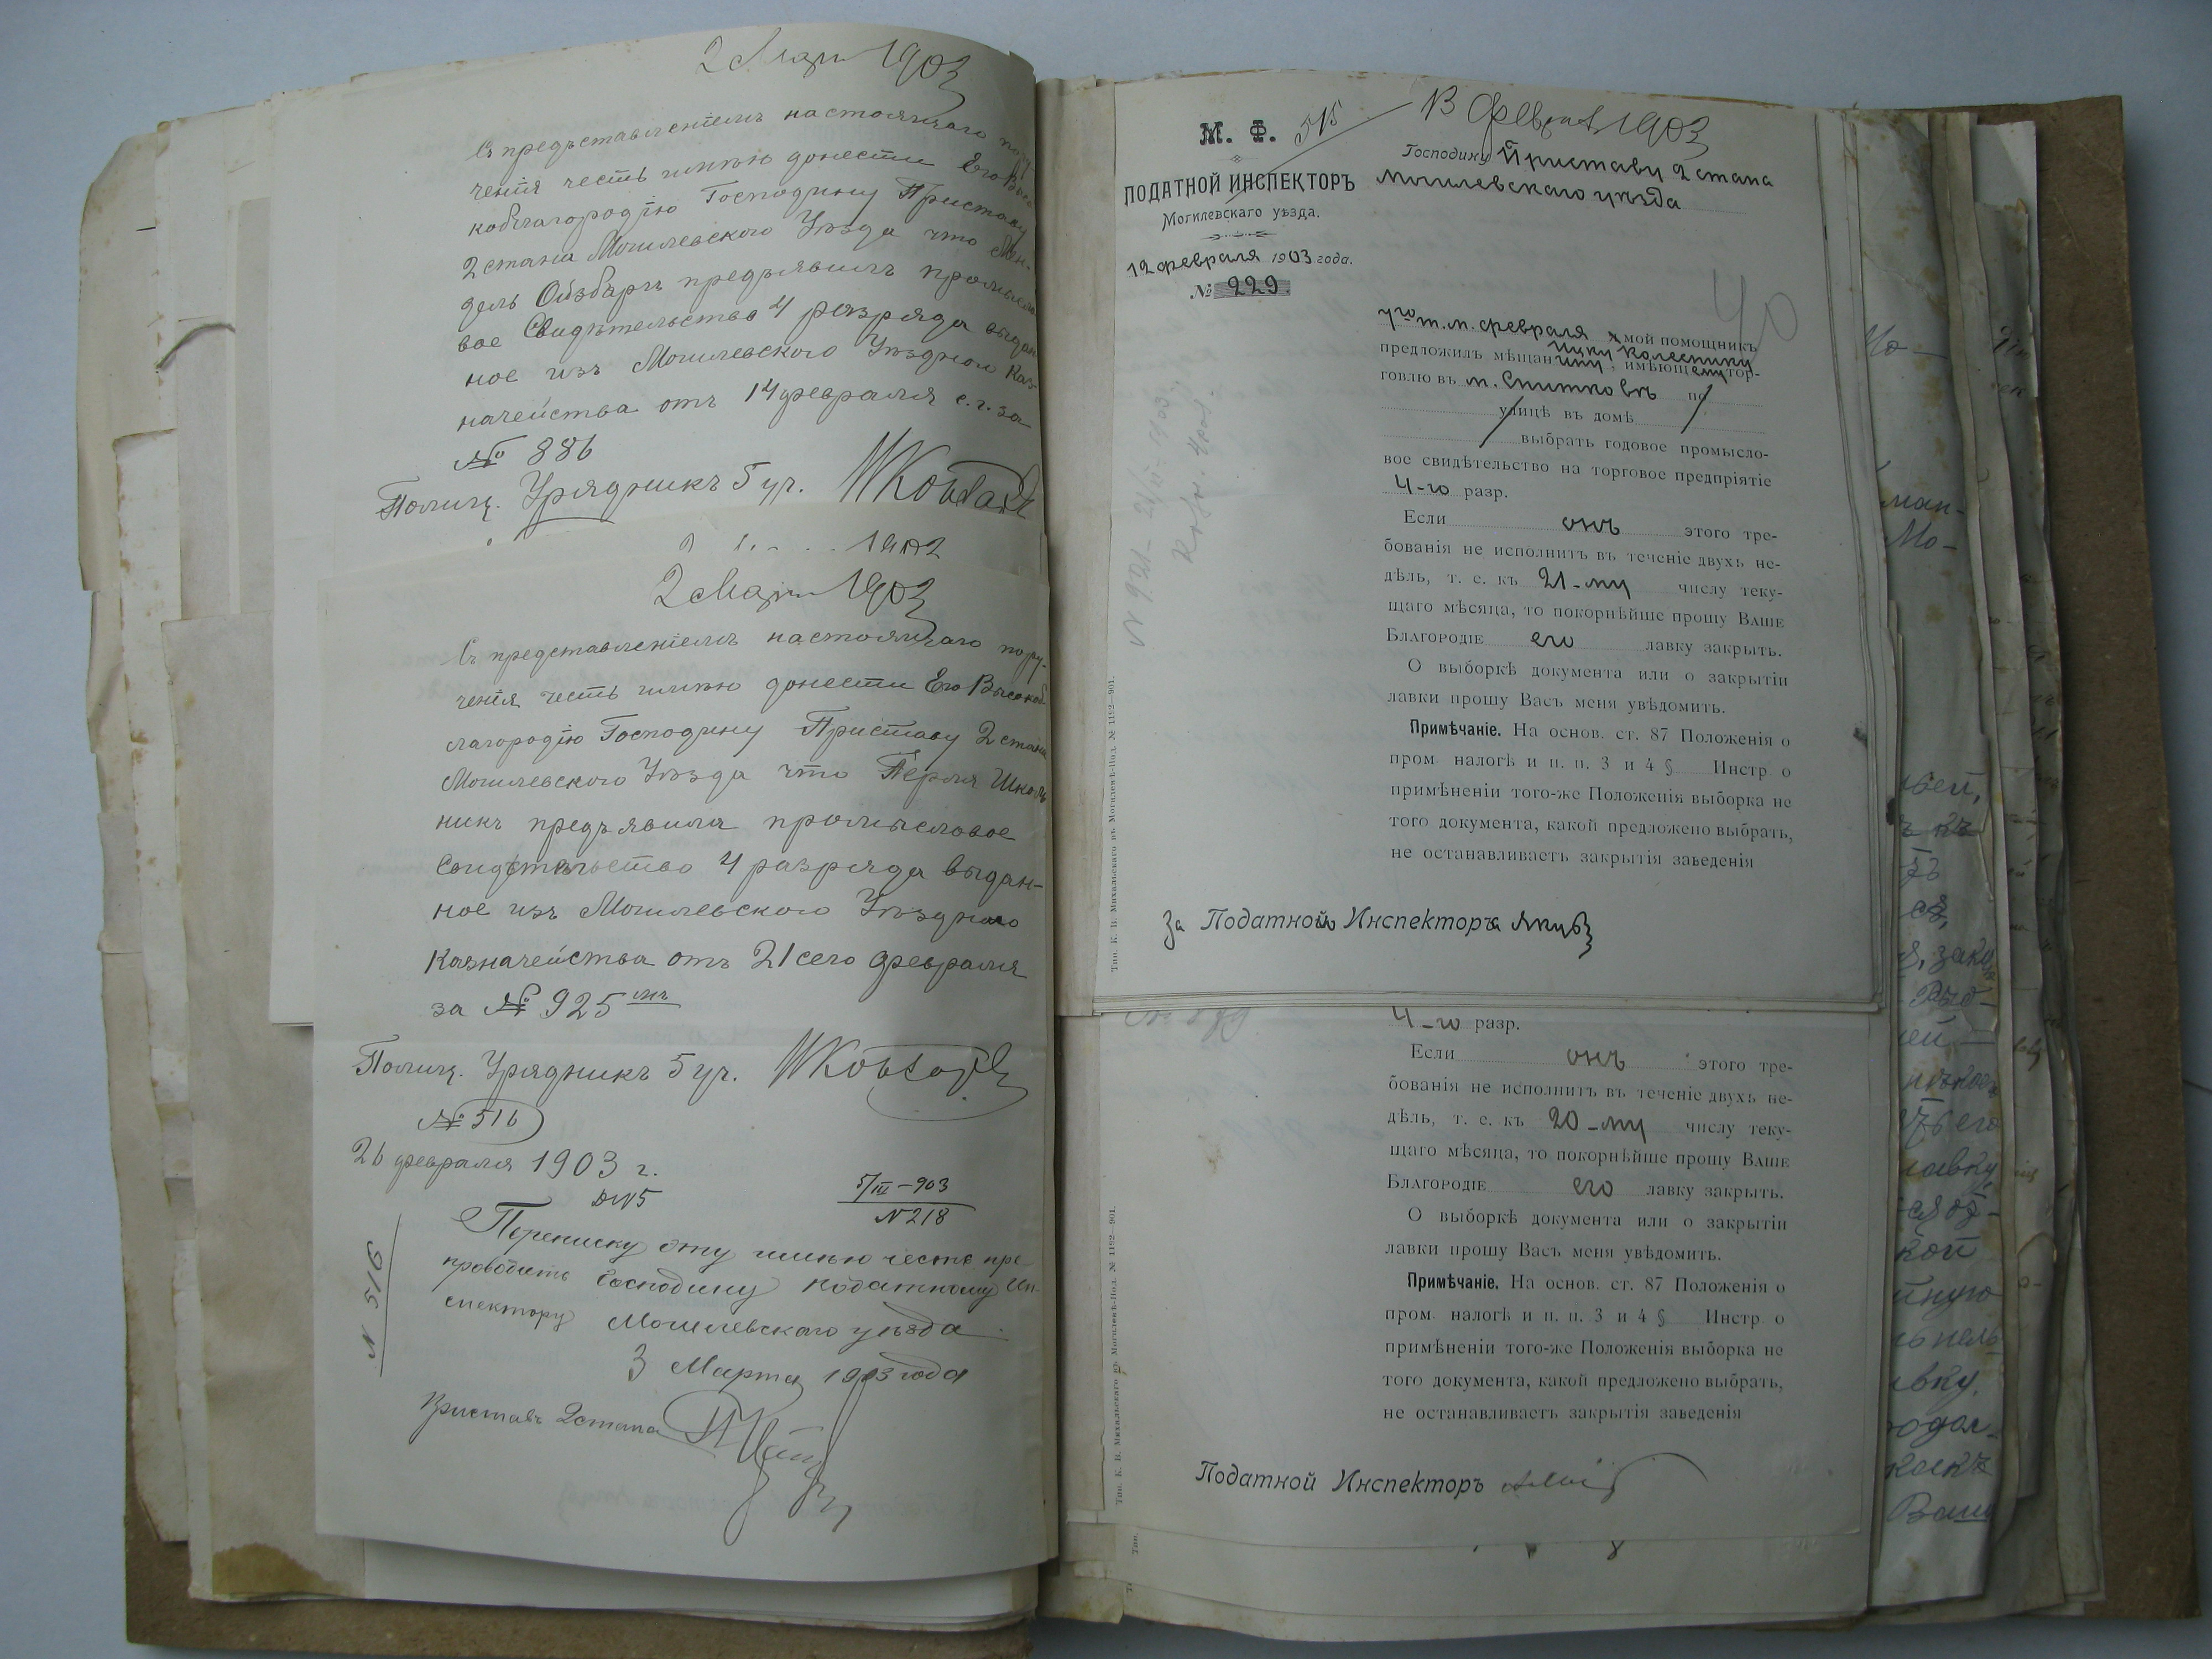 2 Марта 1903
Съ предъставленіемъ настоящаго пору
ченія честь имѣю донести Его Высо
коблагородію Господину Приставу
2 стана Могилевского Уѣзда что Мен-
дель Ойзбаргъ предъявилъ промысло
вое Свидѣтельство 4 разряда выдан
ное изъ Могилевского Уѣздного Каз-
начейства отъ 14 февраля с. г. за
№ 886
Полиц. Урядникъ 5 уч.
1903
2 Марта 1903
Съ представленіемъ настоящаго пору-
ченія честь имѣю донести Его Высокоб
лагородію Господину Приставу 2 стана
Могилевского Уѣзда что Перля Школь
никъ предъявила промысловое
Свидѣтельство 4 разряда выдан-
ное изъ Могилевского Уѣздного
Казначейства отъ 21 сего февраля
за № 925
Полиц. Урядникъ 5 уч.
№ 516
26 февраля 1903 г.
5/III - 903
N 218
Переписку эту имѣю честь пре
проводить Господину податному Ин-
спектору Могилевскаго уѣзда
N 516
3 Марта 1903 года
Приставъ 2 стана
М. Ф.
515
13 Февраля 1903
ПОДАТНОЙ ИНСПЕКТОРЪ
Могилевскаго уѣзда.
12 февраля 1903 года.
№ 229.
Господину Приставу 2 стана
Могилевскаго уѣзда
40
7го т. м. февраля мой помощникъ
Ицку Колеснику
предложилъ мѣщанину, имѣющему тор-
говлю въ м. Снитковѣ по
улицѣ въ домѣ
выбрать годовое промысло-
вое свидѣтельство на торговое предпріятіе
4-го разр.
Если онъ этого тре-
бованія не исполнитъ въ теченіе двухъ не-
дѣль, т. е. къ 21-му числу теку-
щаго мѣсяца, то покорнѣйше прошу ВАШЕ
БЛАГОРОДІЕ его лавку закрыть.
О выборкѣ документа или о закрытіи
лавки прошу Васъ меня увѣдомить.
Примѣчаніе. На основ. ст. 87 Положенія о
пром налогѣ и п. п. 3 и 4 § Инстр о
примѣненіи того-же Положенія выборка не
того документа, какой предложено выбрать,
не останавливаетъ закрытія заведенія
За Податного Инспектора
Тип. К. В. Михальскаго въ Могилевѣ-Под. № 1192—901.
4-го разр.
Если онъ этого тре-
бованія не исполнитъ въ теченіе двухъ не-
дѣль, т. е. къ 20-му числу теку-
щаго мѣсяца, то покорнѣйше прошу ВАШЕ
БЛАГОРОДІЕ его лавку закрыть.
О выборкѣ документа или о закрытіи
лавки прошу Васъ меня увѣдомить.
Примѣчаніе. На основ. ст. 87 Положенія о
пром налогѣ и п. п. 3 и 4 § Инстр о
примѣненіи того-же Положенія выборка не
того документа, какой предложено выбрать,
не останавливаетъ закрытія заведенія
Податной Инспекторъ
Тип. К. В. Михальскаго въ Могилевѣ-Под. № 1192—901.